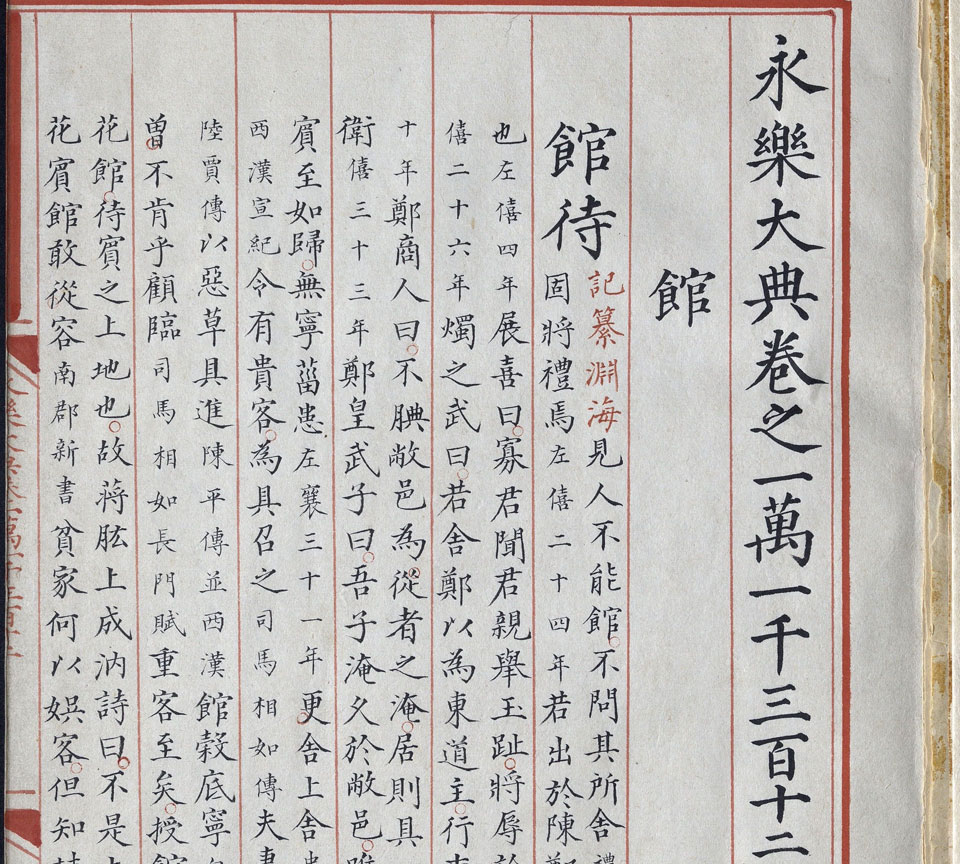 永樂大典卷之一萬一千三百十二
館
館待
記纂淵海見人不能館不問其所舍禮
固將禮焉左僖二十四年若出於陳鄭
也左僖四年展喜曰寡君聞君親舉玉趾將辱於
僖二十六年燭之武曰若舍鄭以為東道主行李
十年鄭商人曰不腆敝邑為從者之淹居則具
衛僖三十三年鄭皇武子曰吾子淹久於敝邑唯
賓至如歸無寧菑患左襄三十一年更舍上舍
西漢宣紀令有貴客為具召之司馬相如傳夫妻
陸賈傳以惡草具進陳平傳並西漢館穀底寧
曾不肯乎顧臨司馬相如長門賦重客至矣授館
花館待賓之上地也故蔣肱上成汭詩曰不是上
花賓館敢從容南郡新書貧家何以娯客但知